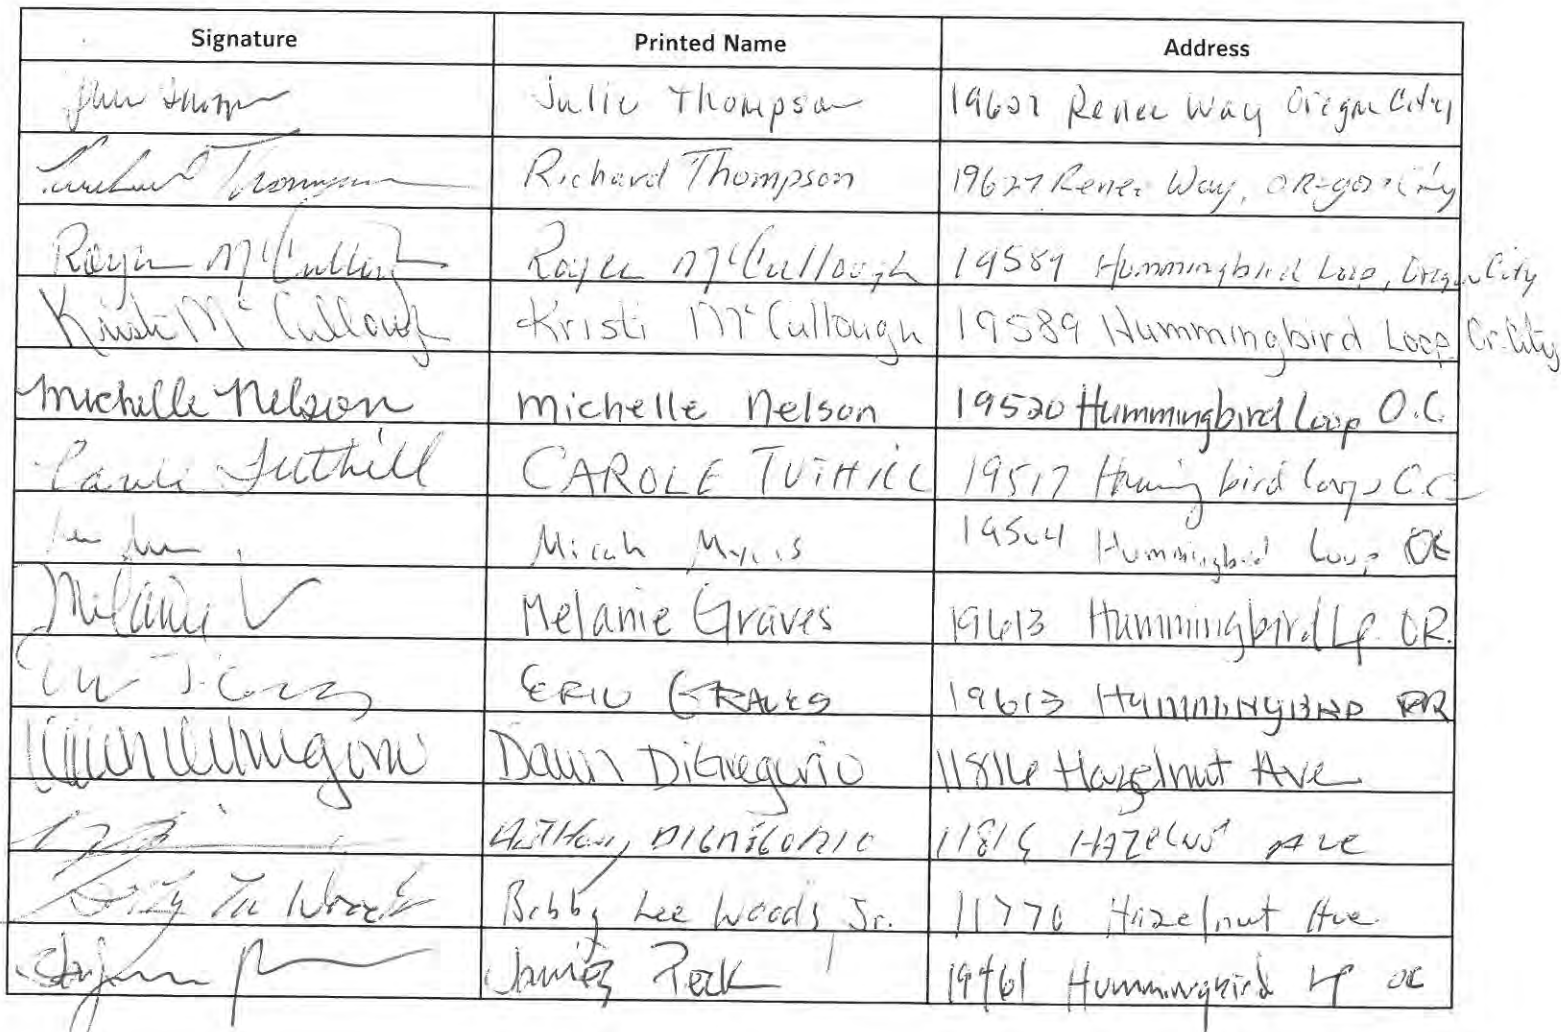 Signature Printed Name Address
Julie Thompson 19627 Renee Way Oregon City
Richard Thompson 19627 Renee Way, Oregon City
McCullough McCullough 19589 Hummingbird Loop, Oregon City
Kristi McCullough Kristi McCullough 19589 Hummingbird Loop Or. City
Michelle Nelson Michelle Nelson 19520 Hummingbird Loop O.C.
Carole Tuthill CAROLE TUTHILL 19517 bird Loop O.C.
Micah Myers 19504 Hummingbird Loop OC
Melanie Melanie Graves 19613 Hummingbird Lp OR.
ERIC GRAVES 19613 HUMMINGBIRD
Dawn DiGregorio 11816 Hazelnut Ave
Anthony DIGREGORIO 11816 Ave
Bobby Lee Woods Jr. 11770 Hazelnut Ave.
Peck 19461 Hummingbird Lp OC